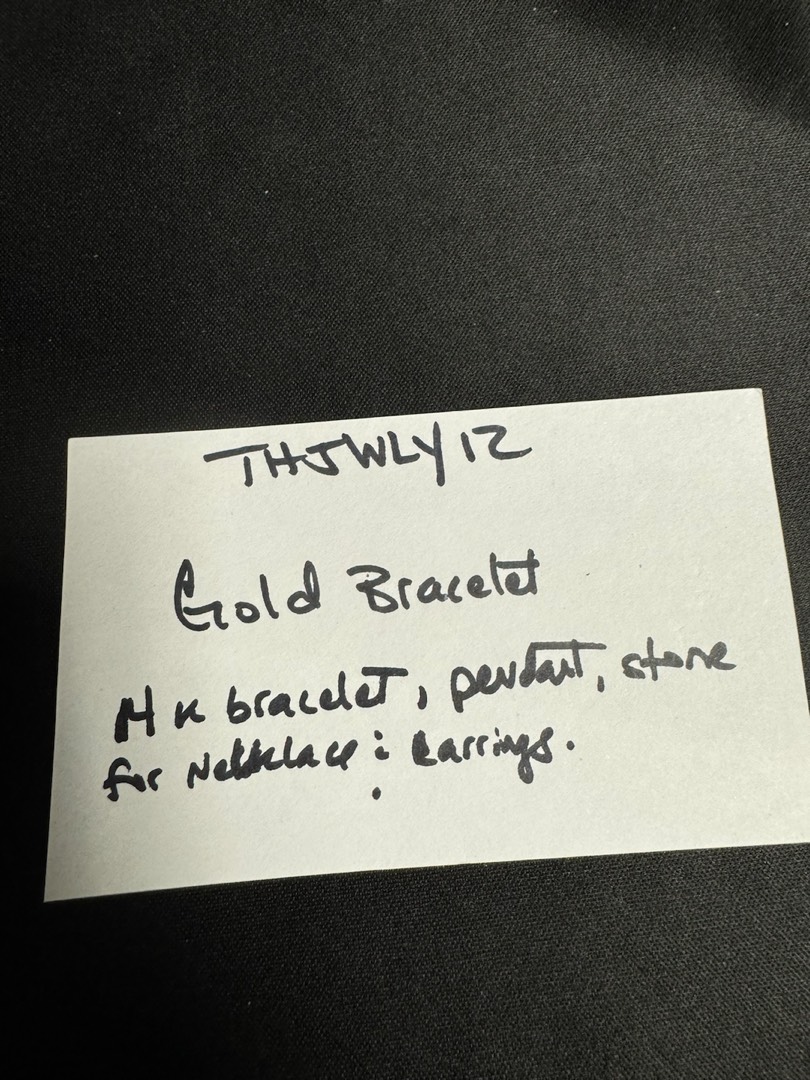 THJWLY12
Gold Bracelet
14 K bracelet, pendant, stone
for Necklace : Earrings.